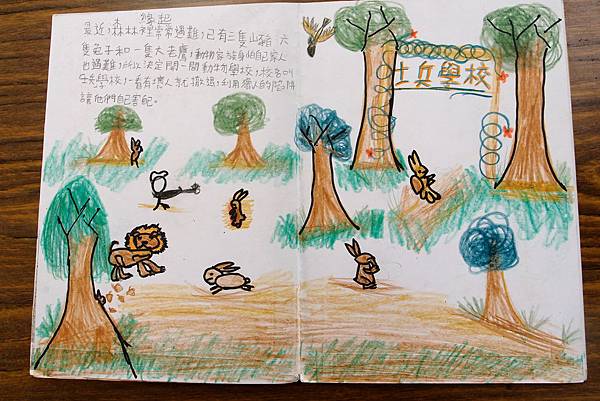 緣起
最近,森林裡常常遇難,已有三隻山豬 六
隻兔子和一隻大老鷹,動物家族身怕自己家人
也遇難,所以決定開一間動物學校,校名叫
兵學校,一看有壞人就撤退,利用獵人的陷阱
讓他們自己害。
士兵學校